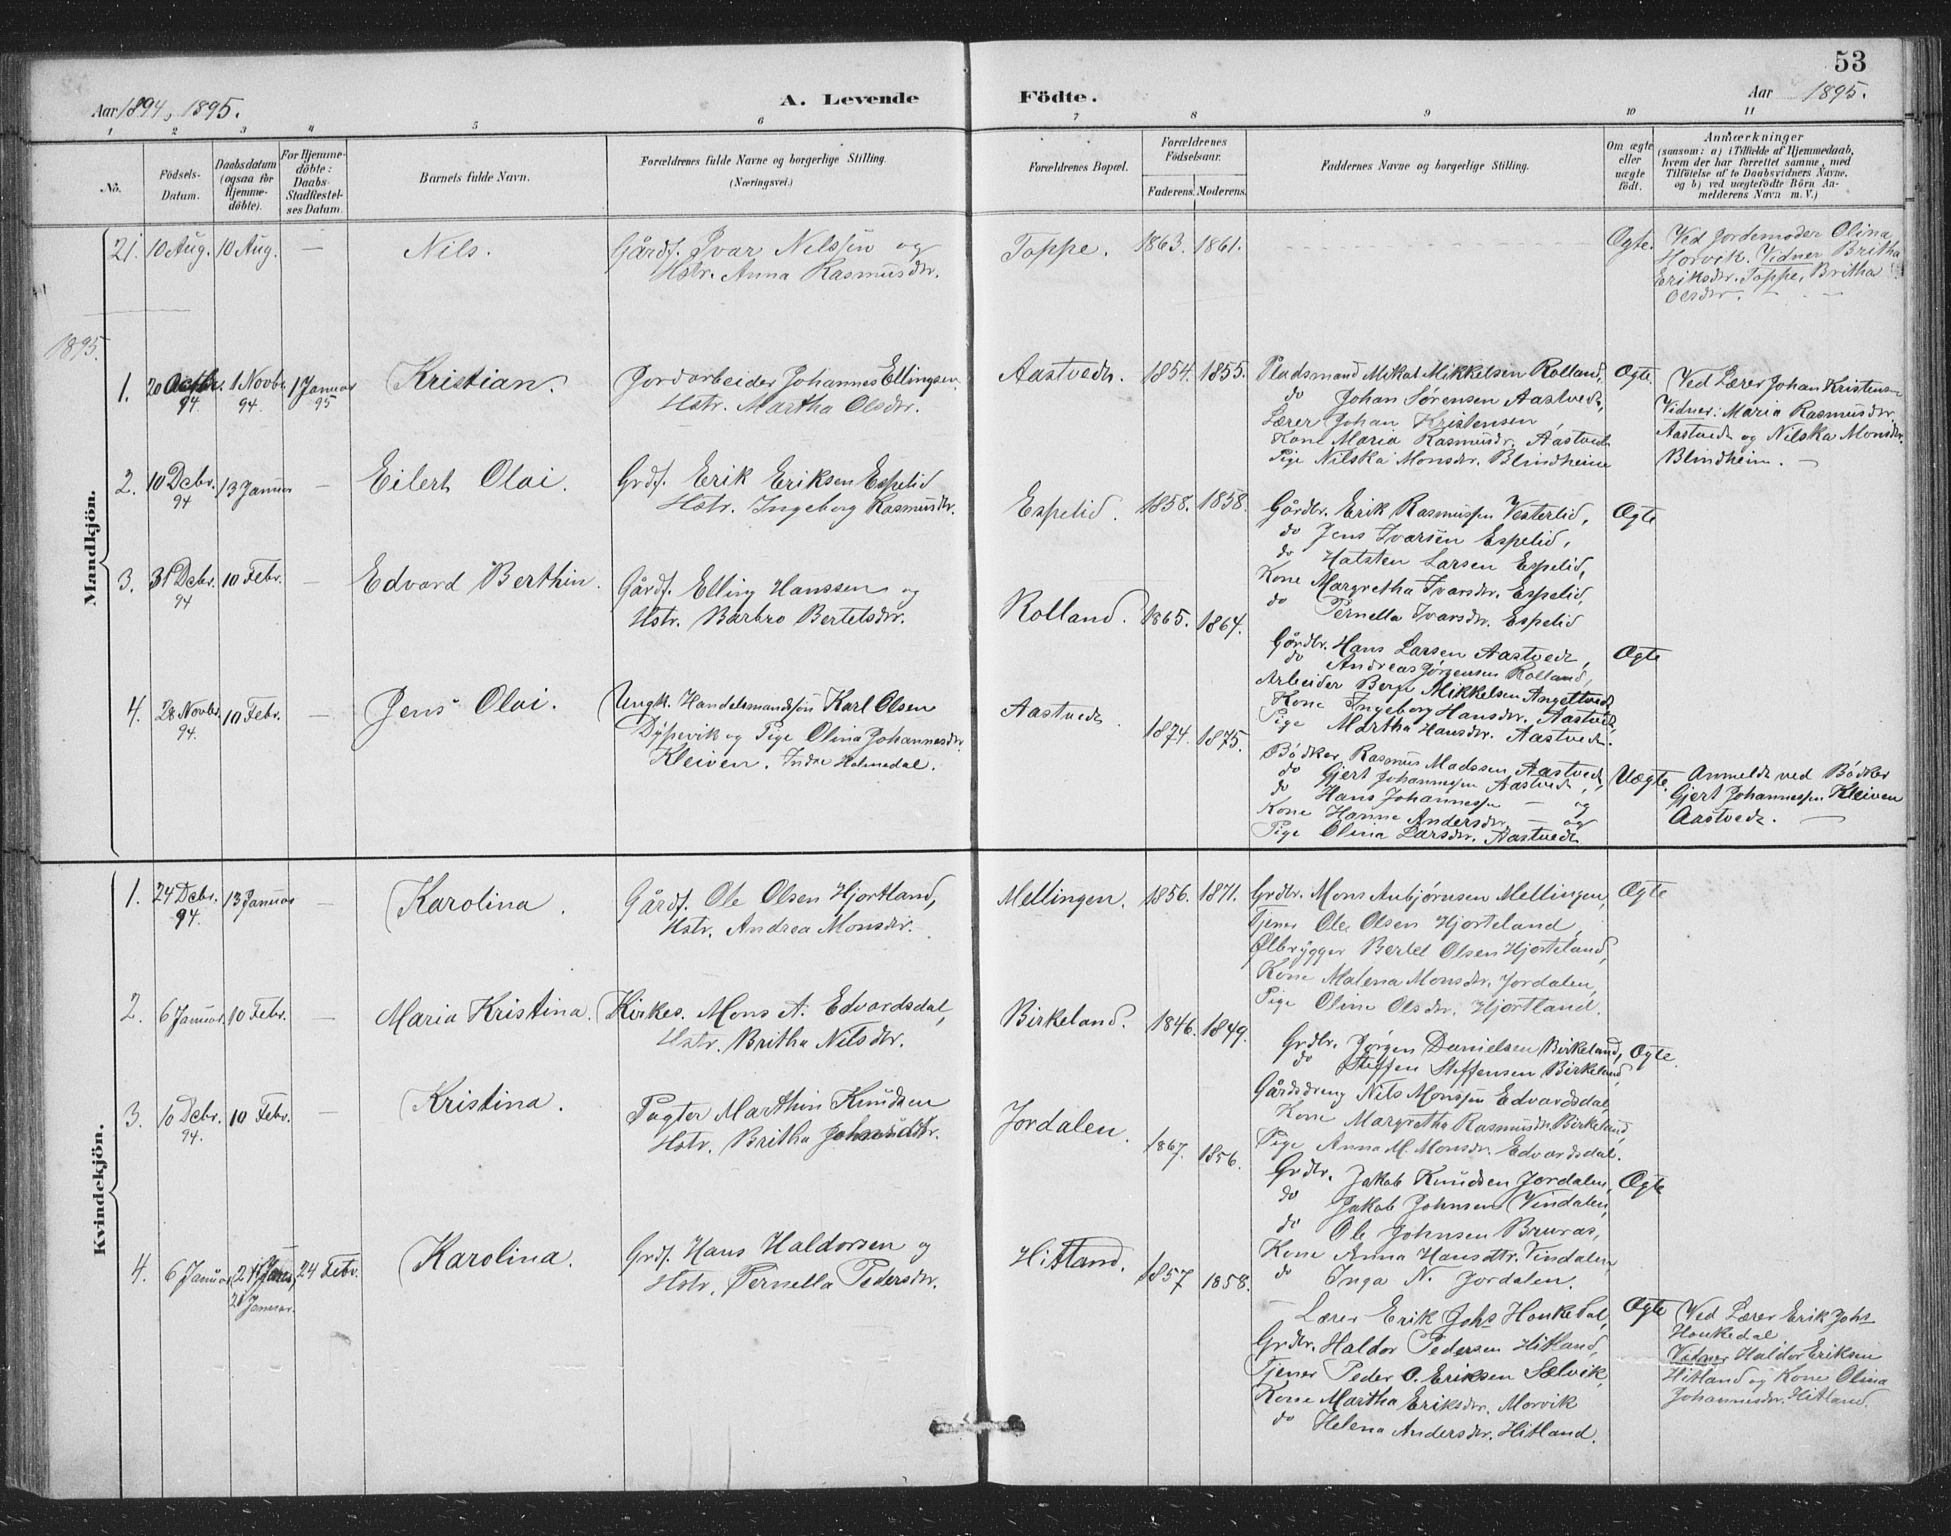 53
Aar 1894, 1895. A. Levende Födte. Aar 1895.
1 2 3 4 5 6 7 8 9 10 11
No.
Födsels-
Datum.
Daabsdatum
(ogsaa for
Hjemme-
döbte).
For Hjemme-
döbte:
Daabs-
Stadfæstel-
ses Datum.
Barnets fulde Navn.
Forældrenes fulde Navne og borgerlige Stilling.
(Næringsvei.)
Forældrenes Bopæl.
Forældrenes
Födselsaar.
Faderens. Moderens.
Faddernes Navne og borgerlige Stilling.
Om ægte
eller
uægte
födt.
Anmærkninger
(saasom: a) i Tilfælde af Hjemmedaab,
hvem der har forrettet samme, med
Tilföielse af to Daabsvidners Navne.
og b) ved uægtefödte Börn An-
melderens Navn m. V.)
Mandkjön.
21. 10 Aug. 10 Aug. — Nils.
Gårdf. Ivar Nilssen og
Hstr. Anna Rasmusdtr.
Toppe. 1863. 1861.
Ægte.
Ved Jordemoder Olina
Horvik. Vidner Britha
Eriksdtr. Toppe, Britha
Olsdtr. —
1895.
1. 20 Octbr. 94. 1 Novbr. 94. 1 Januar 95 Kristian.
Jordarbeider Johannes Ellingsen.
Hstr. Martha Olsdtr.
Aastvedt. 1854. 1855.
Pladsmand Mikal Mikkelsen Rolland,
do Johan Sørensen Aastvedt,
Lærer Johan Kristensen,
Kone Maria Rasmusdtr. Aastvedt
Pige Nilska Monsdtr. Blindheim
Ægte.
Ved Lærer Johan Kristensen
Vidner: Maria Rasmusdtr.
Aastvedt og Nilska Monsdtr.
Blindheim. —
2. 10 Decbr. 94 13 Januar — Eilert Olai.
Grdf. Erik Eriksen Espelid
Hstr. Ingeborg Rasmusdtr.
Espelid. 1858. 1858.
Gårdbr. Erik Rasmussen Vesterlid,
do Jens Ivarsen Espelid,
do Halsten Larsen Espelid,
Kone Margretha Ivarsdtr. Espelid,
do Pernella Ivarsdtr. Espelid
Ægte
3. 31 Decbr. 94 10 Febr. — Edvard Berthin.
Gårdf. Elling Hanssen og
Hstr. Barbro Bertelsdtr.
Rolland. 1865. 1864.
Gårdbr. Hans Larsen Aastvedt,
do Andreas Jørgensen Rolland,
Arbeider Berge Mikkelsen Angeltvedt,
Kone Ingeborg Hansdtr. Aastvedt,
Pige Martha Hansdtr. Aastvedt.
Ægte
4. 28 Novbr. 94. 10 Febr. — Jens Olai.
Ungk. Handelsmandssøn Karl Olsen
Dypevik og Pige Olina Johannesdtr.
Kleiven. Indre Holmedal.
Aastvedt. 1874. 1875.
Bødker Rasmus Madssen Aastvedt,
do Gjert Johannessen Aastvedt,
do Hans Johannessen — og
Kone Hanne Andersdtr. — og
Pige Olina Larsdtr. Aastvedt
Uægte.
Anmeldt ved Bødker
Gjert Johannessen Kleiven
Aastvedt. —
Kvindekjön.
1. 24 Decbr. 94. 13 Januar — Karolina.
Gårdf. Ole Olsen Hjortland,
Hstr. Andrea Monsdtr.
Mellingen. 1856. 1871.
Grdbr. Mons Anbjørnsen Mellingen,
Tjener Ole Olsen Hjorteland,
Ølbrygger Bertel Olsen Hjorteland,
Kone Malena Monsdtr. Jordalen,
Pige Oline Olsdtr. Hjortland.
Ægte
2. 6 Januar. 10 Febr. — Maria Kristina.
Kirkes. Mons A. Edvardsdal,
Hstr. Britha Nilsdtr.
Birkeland. 1846. 1849.
Grdbr. Jørgen Danielsen Birkeland,
do Steffen Steffensen Birkeland,
Gårdsdreng Nils Monssen Edvardsdal,
Kone Margretha Rasmusdtr. Birkeland,
Pige Anna M. Monsdtr. Edvardsdal.
Ægte.
3. 10 Decbr. 94. 10 Febr. — Kristina.
Pagter Marthin Knudsen
Hstr. Britha Johnsdtr.
Jordalen. 1867. 1856.
Grdbr. Jakob Knudsen Jordalen,
do Jakob Johnsen Vindalen,
do Ole Johnsen Bruras,
Kone Anna Hansdtr. Vindalen,
do Inga N. Jordalen.
Ægte
4. 6 Januar 21 Januar. 24 Febr. Karolina.
Grdf. Hans Haldorsen og
Hstr. Pernella Pedersdtr.
Hitland. 1857 1858.
Lærer Erik Johs Houkedal,
Grdbr. Haldor Pedersen Hitland,
Tjener Peder O. Eriksen Sælvik,
Kone Martha Eriksdtr. Morvik
do Helena Andersdtr. Hitland.
Ægte
Ved Lærer Erik Johs
Houkedal
Vidner Haldor Eriksen
Hitland og Kone Olina
Johannesdtr. Hitland.